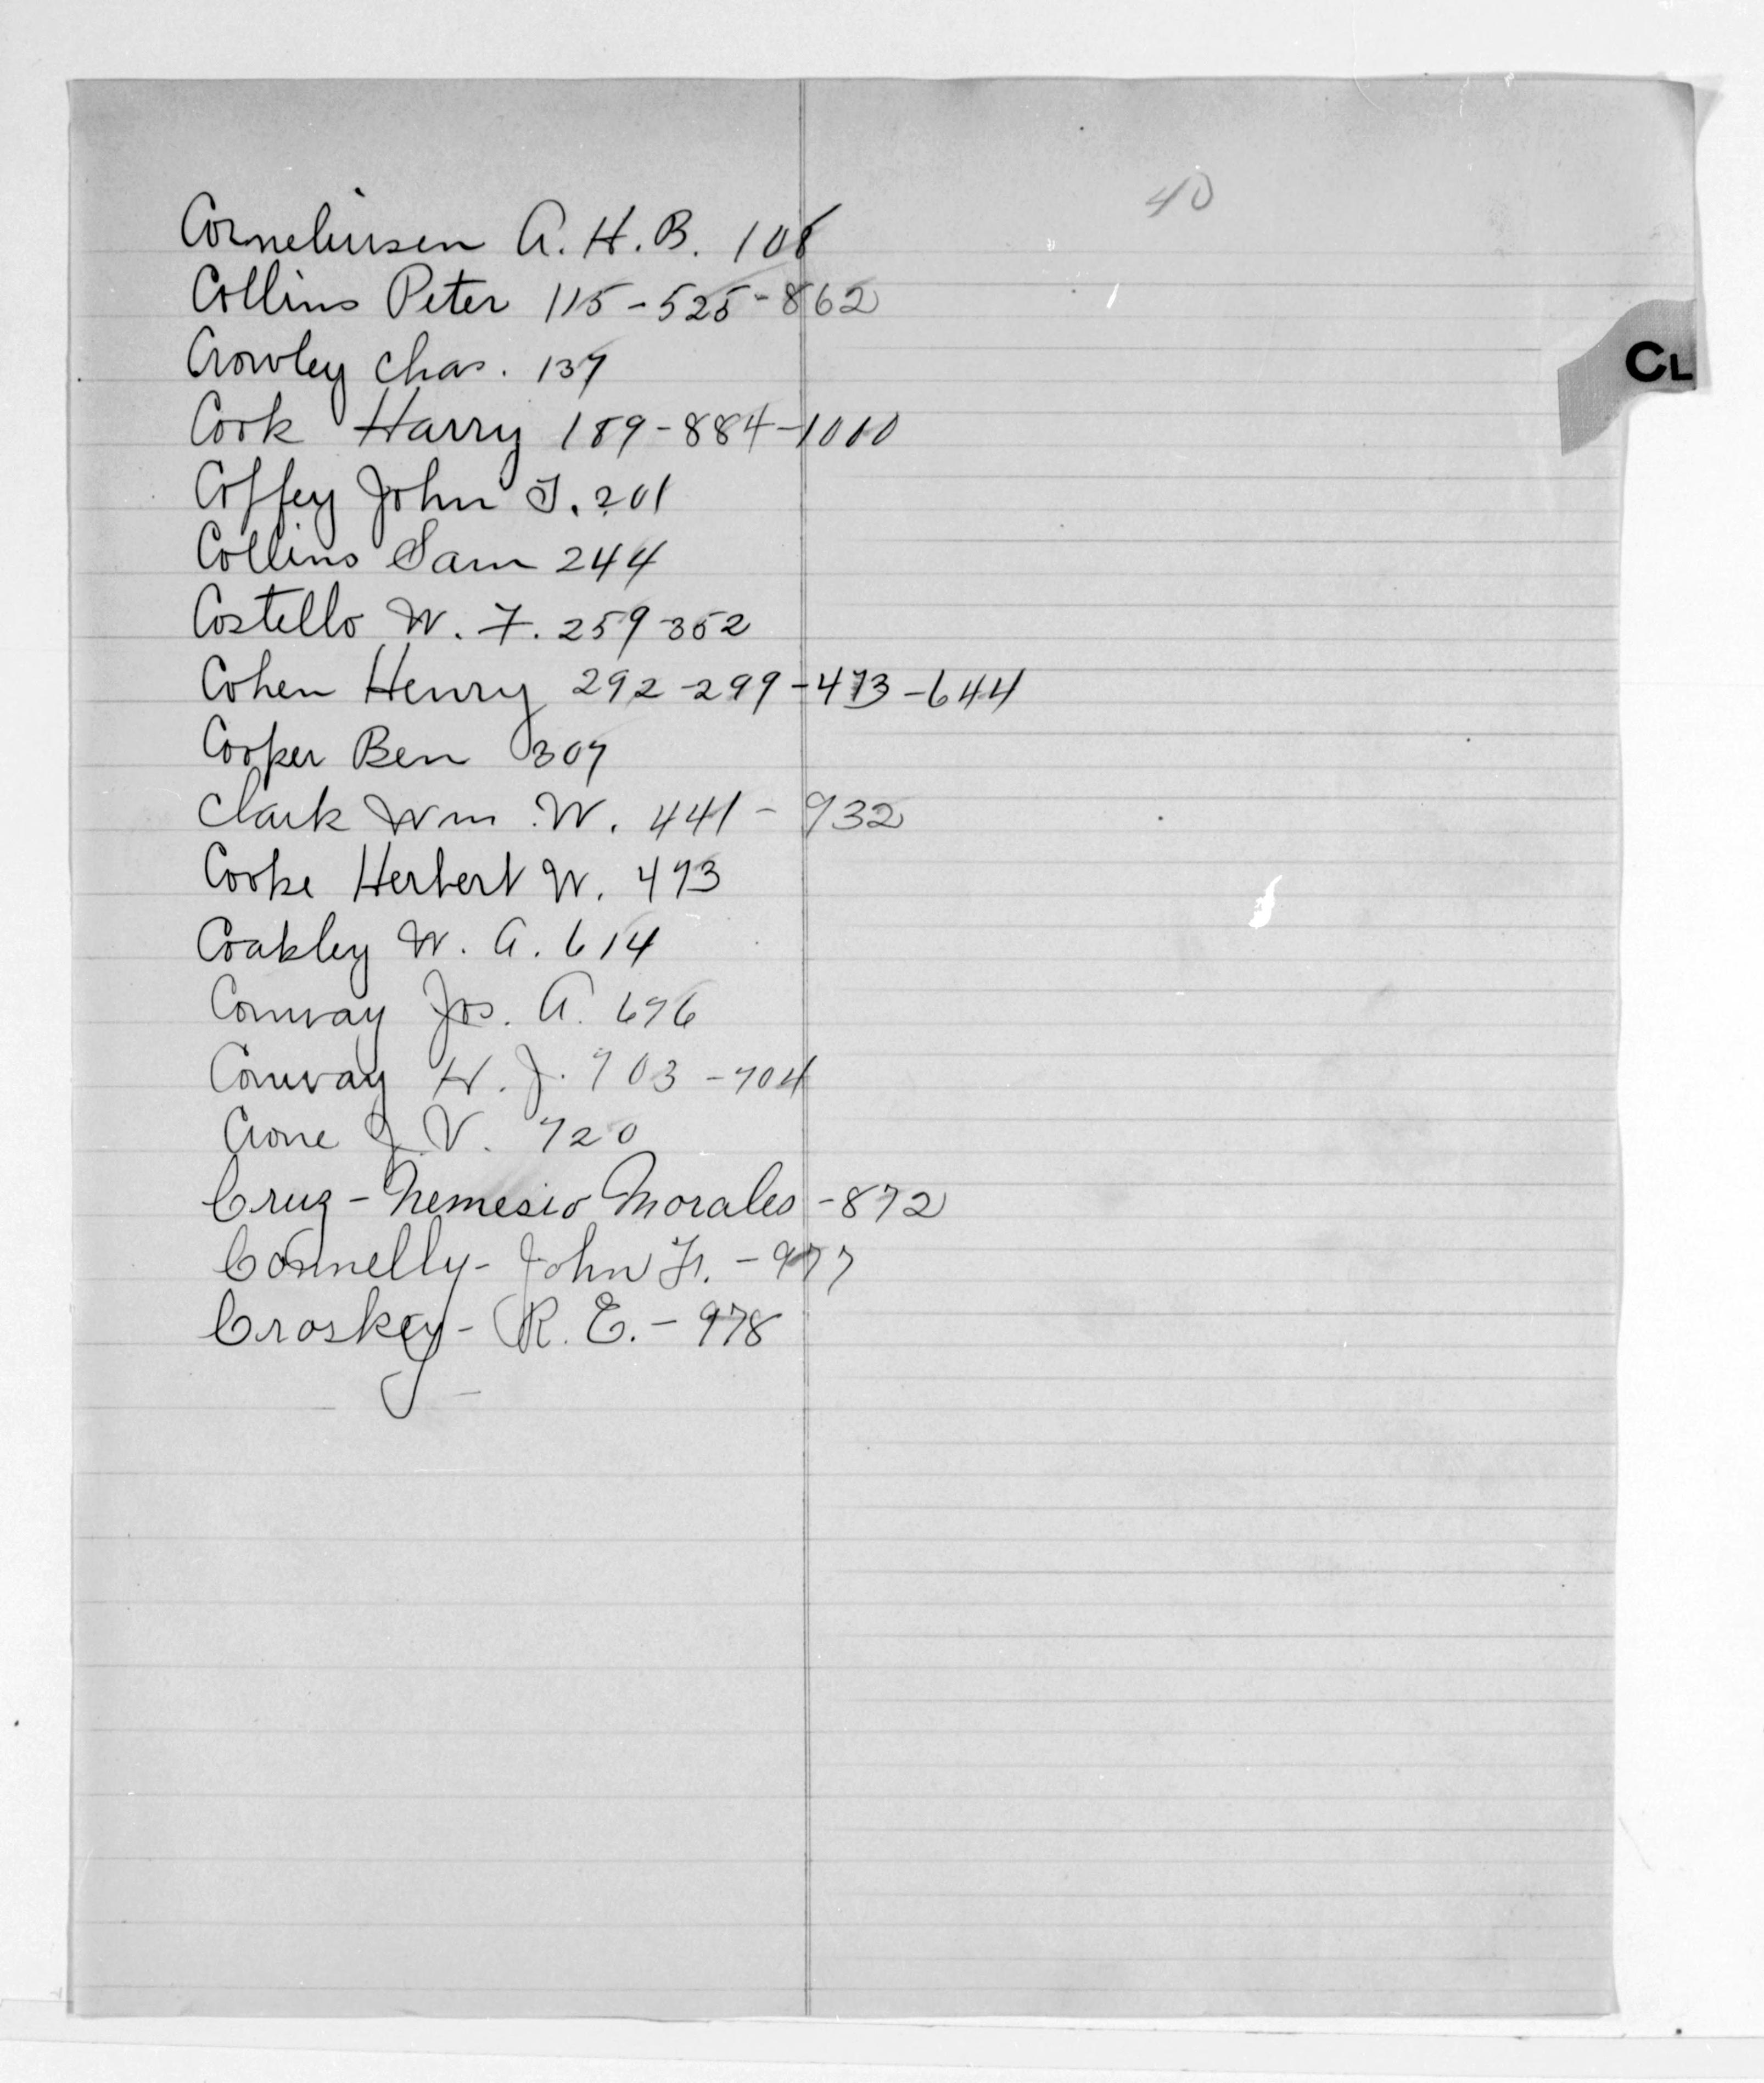 40
Corneliusen A. H. B. 108
Collins Peter 115-525-862
CL
Crowley Chas. 137
Cook Harry 189-884-1010
Coffey John J. 201
Collins Sam 244
Costello W. F. 259-352
Cohen Henry 292-299-473-644
Cooper Ben 307
Clark Wm W. 441-932
Cooke Herbert W. 473
Coakley W. A. 614
Conway Jos. A. 676
Conway W. J. 703-704
Crone J. V. 720
Cruz-Nemesio Morales-872
Connelly-John Fr.-977
Croskey-R. E.-978